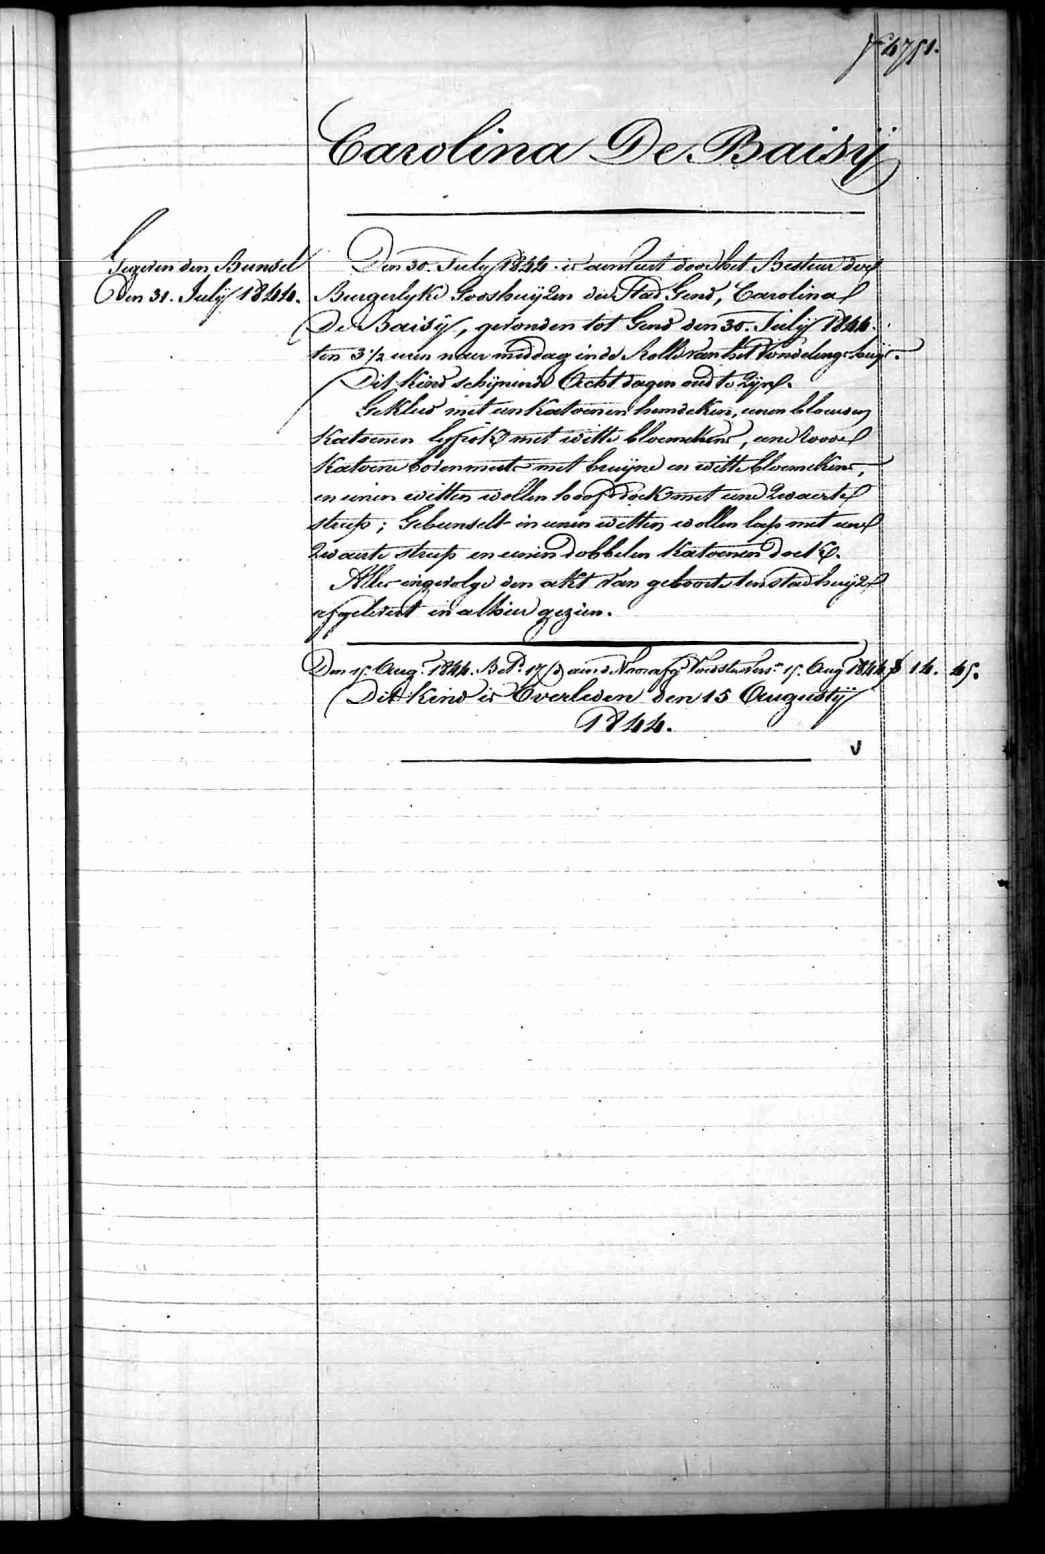 fº 4751.
Carolina De Baisÿ
Gegeven den Bunsel
Den 31. Julÿ 1844.
Den 30. Julÿ 1844. is aenveert door het Bestuer der
Burgerlyke Godshuijzen der Stad Gend, Carolina
De Baisÿ, gevonden tot Gend den 30. Julÿ 1844.
ten 3 1/2 uren naer middag in de Rolle van het Vondelinghuijs.
Dit Kind schijnende Acht dagen oud te zÿn.
Gekleed met een Katoenen hemdeken, eenen blauwen
Katoenen lyfrok met witte bloemekens, eene roode
Katoene bovenmuts met bruijne en witte bloemekens,
en eenen witten wollen hoofddoek met eene zwarte
streep; Gebunselt in eenen witten wollen lap met eene
zwarte streep en eenen dobbelen Katoenen doek.
Alles ingevolge den akt van geboorte ten stadhuijze
afgelevert en alhier gezien.
Den 15. Aug. 1844. Bet. 17 aen de 15. Aug. 1844. 14. 45.
Dit Kind is Overleden den 15 Augustÿ
1844.